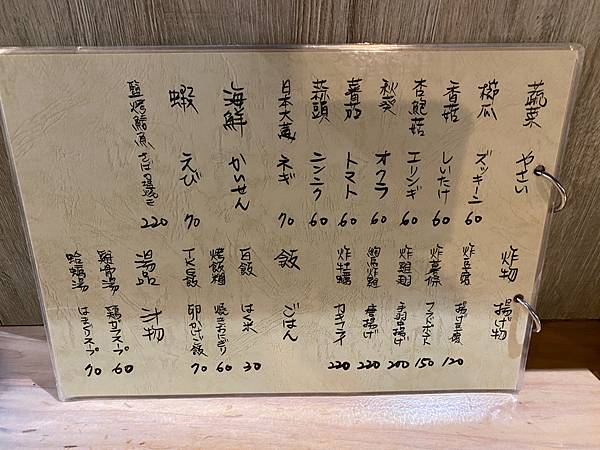 蔬菜 やさい
櫛瓜 ズッキーニ 60
香菇 しいたけ 60
杏鮑菇 エリンギ 60
秋葵 オクラ 60
蕃茄 トマト 60
蒜頭 ニンニク 60
日本大蔥 ネギ 70
海鮮 かいせん
蝦 えび 70
鹽烤鯖魚 さば塩焼き 220
炸物 揚げ物
炸豆腐 揚げ豆腐 120
炸薯條 フライポテト 150
炸雞翅 手羽揚げ 200
炸雞 唐揚げ 220
炸牡蠣 カキフライ 220
飯 ごはん
白飯 はく米 30
烤飯糰 焼きおにぎり 60
TKG飯 卵かけご飯 70
湯品 汁物
雞骨湯 鶏ガラスープ 60
蛤蠣湯 はまぐりスープ 70